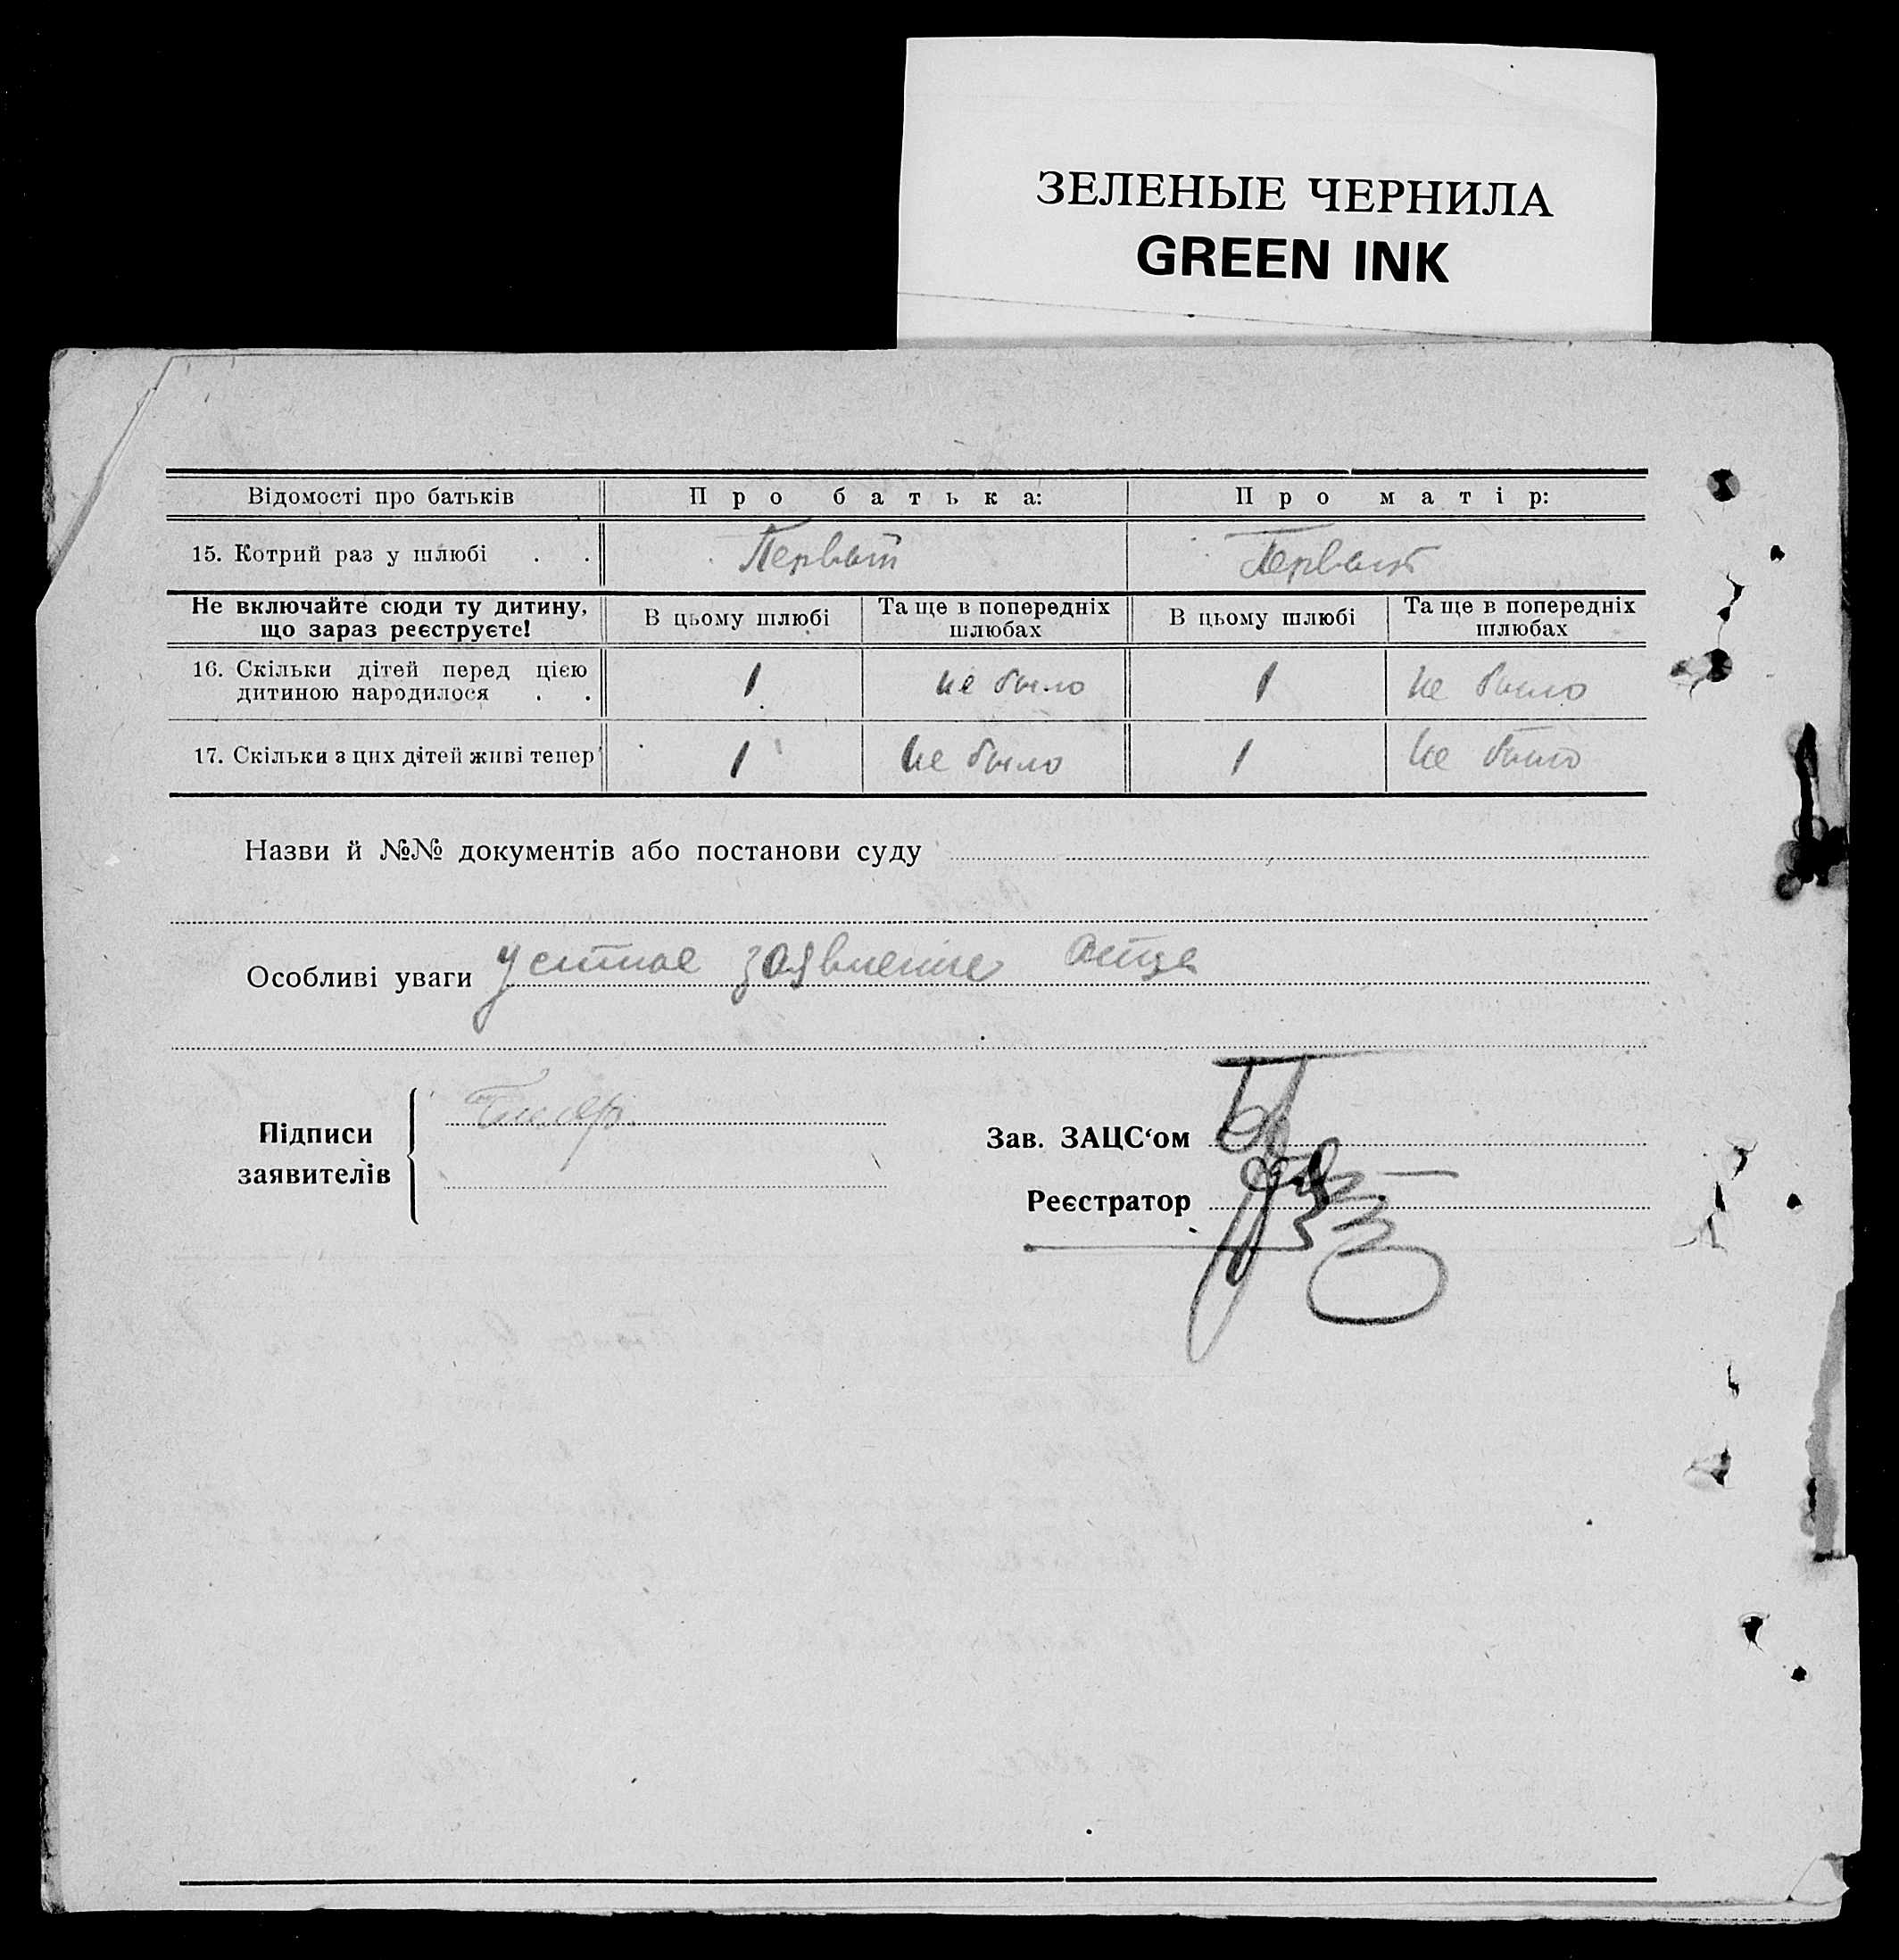 ЗЕЛЕНЫЕ ЧЕРНИЛА
GREEN INK
Відомості про батьків Про батька: Про матір:
15. Котрий раз у шлюбі . . Первый Первый
Не включайте сюди ту дитину, що зараз реєструєте! В цьому шлюбі Та ще в попередніх шлюбах В цьому шлюбі Та ще в попередніх шлюбах
16. Скільки дітей перед цією дитиною народилося . . 1 не было 1 не было
17. Скільки з цих дітей живі тепер 1 не было 1 не было
Назви й №№ документів або постанови суду
Особливі уваги устное заявление отца
Підписи заявителів
Зав. ЗАЦС‘ом
Реєстратор